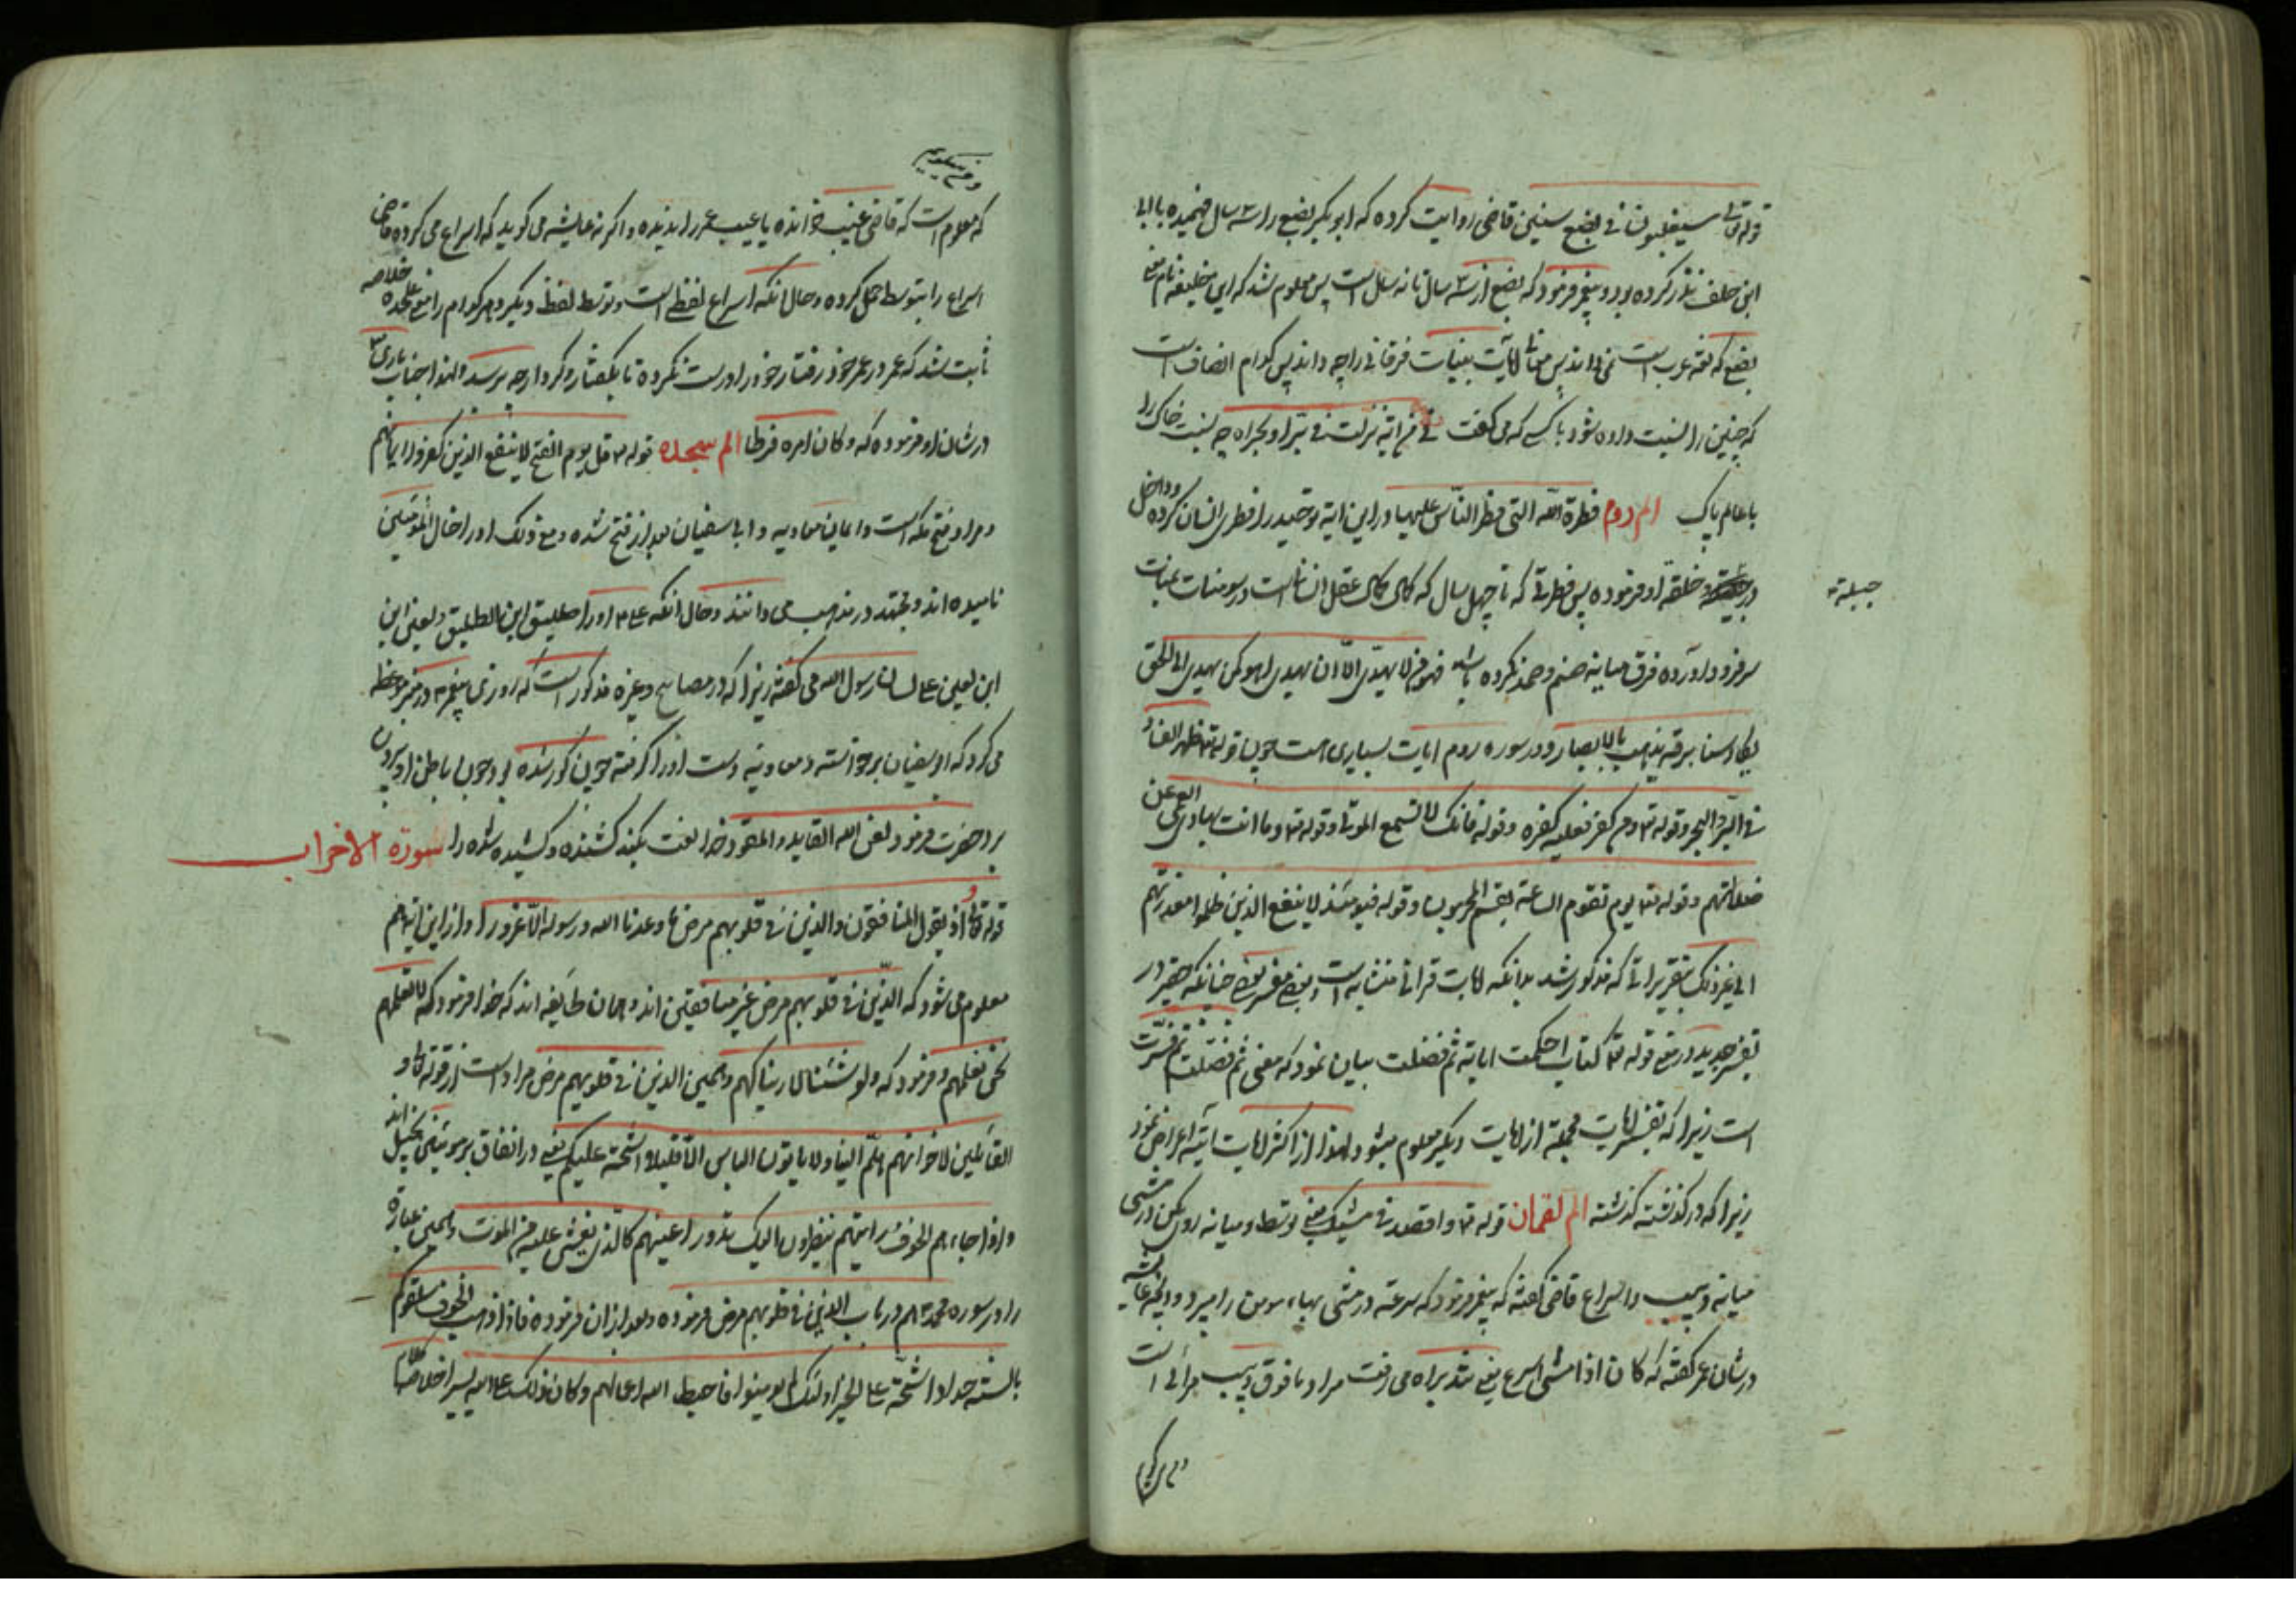 قوله تعالی سیغلبون فی بضع سنین قاضی روایت کرده که ابوبکر بضع را سه سال فهمیده با ابی
ابن خلف نذر کرده بود و پیغمبر فرمود که بضع از سه سال تا نه سال است پس معلوم شد که این خلیفه نام معنی
بضع که لغة عرب است نمی داند پس معانی آیات بینات فرقانی را چه داند پس کدام انصاف است
که چنین را نسبت داده شود با کسی که می گفت فی من ایة نزلت فی بر او بحر اه چه نسبت خاک را
با عالم پاک الم روم فطرة الله التی فطر الناس علیها و در این ایة توحید را فطری انسان کرده و داخل
در خلقة او فرموده پس فطرتی که تا چهل سال که کمال عقل انسان است در سومنات عبادت
جبلة
سر فرود آورده فرق میانه صنم و صمد نکرده باشد فهو من لا یهدی الا ان یهدی او کمن یهدی الی الحق
یکاد سنا برقه یذهب بالابصار و در سوره روم ایات بسیاری هست چون قوله ظهر الفساد
فی البر والبحر وقوله ومن کفر فعلیه کفره وقوله فانک لا تسمع الموتی وقوله وما انت بهادی العمی عن
ضلالتهم وقوله یوم تقوم الساعة یقسم المجرمون وقوله فیومئذ لا ینفع الذین ظلموا معذرتهم
الی غیر ذلک بتقریراتی که مذکور شد بدانکه ایات قرانی متشابه است بعضی مفسر بعضی چنانکه حقیر در
تفسیر جدید در معنی قوله کتاب احکمت ایاته ثم فصلت بیان نمود که معنی ثم فصلت ثم فسرت
است زیرا که تفسیر ایات مجمله از ایات دیگر معلوم میشود ولهذا از اکثر ایات اتیه اعراض نمود
زیرا که در گذشته گذشته الم لقمان قوله واقصد فی مشیک یعنی توسط و میانه روی کن در مشی
میانه دبیب و اسراع قاضی گفته که پیغمبر فرمود که سرعة در مشی بهاء مومن را میبرد و انچه عایشه
در شان عمر گفته که کان اذا مشی اسرع یعنی تند براه می رفت مراد ما فوق دبیب مرائی است
که معلوم است که قاضی غیب خوانده یا عیب عمر را ندیده و اگر نه عایشه می گوید که اسراع می کرده قاضی
اسراع را بتوسط حمل کرده و حال انکه اسراع لفظی است و توسط لفظ دیگر و هر کدام را معنی علیحده خلاصه
ثابت شد که عمر در عمر خود رفتار خود را درست نکرده تا بگفتار و کردار چه رسد ولهذا جناب باری
در شان او فرموده که وکان امره فرطا الم سجده قوله قل یوم الفتح لا ینفع الذین کفروا ایمانهم
و مراد فتح مکه است و ایمان معاویه و ابی سفیان بعد از فتح شده و مع ذلک او را خال المؤمنین
نامیده اند و مجتهد در مذهب می دانند و حال انکه علی او را طلیق ابن الطلیق ولعین ابن
ابن لعین علی لسان رسول الله می گفته زیرا که در مصابیح و غیره مذکور است که روزی پیغمبر در منبر موعظه
می کرد که ابوسفیان برخواسته و معاویه دست او را گرفته چون کور شده بود چون باطن او بیرون
برد حضرت فرمود لعن الله القاید والمقود خدا لعنت بکند کشنده و کشیده شده را سورة الاحزاب
قوله تعالی واذ یقول المنافقون والذین فی قلوبهم مرض ما وعدنا الله ورسوله الا غرورا و از این ایة هم
معلوم می شود که الذین فی قلوبهم مرض غیر منافقین اند و همان طایفه اند که خدا فرمود که لا تعلمهم
نحن نعلمهم و فرمود که ولو نشاء لاریناکهم و همین الذین فی قلوبهم مرض مراد است از قوله و
القائلین لاخوانهم هلم الینا ولا یاتون الباس الا قلیلا اشحة علیکم یعنی در انفاق بر مومنین بخیل اند
واذا جاء هم الخوف رایتهم ینظرون الیک تدور اعینهم کالذی یغشی علیه من الموت و همین عبارة
را در سوره محمد هم در باب الذین فی قلوبهم مرض فرموده و بعد از ان فرموده فاذا ذهب الخوف سلقوکم
بالسنة حداد اشحة علی الخیر اولئک لم یومنوا فاحبط الله اعمالهم وکان ذلک علی الله یسیرا خلاصه